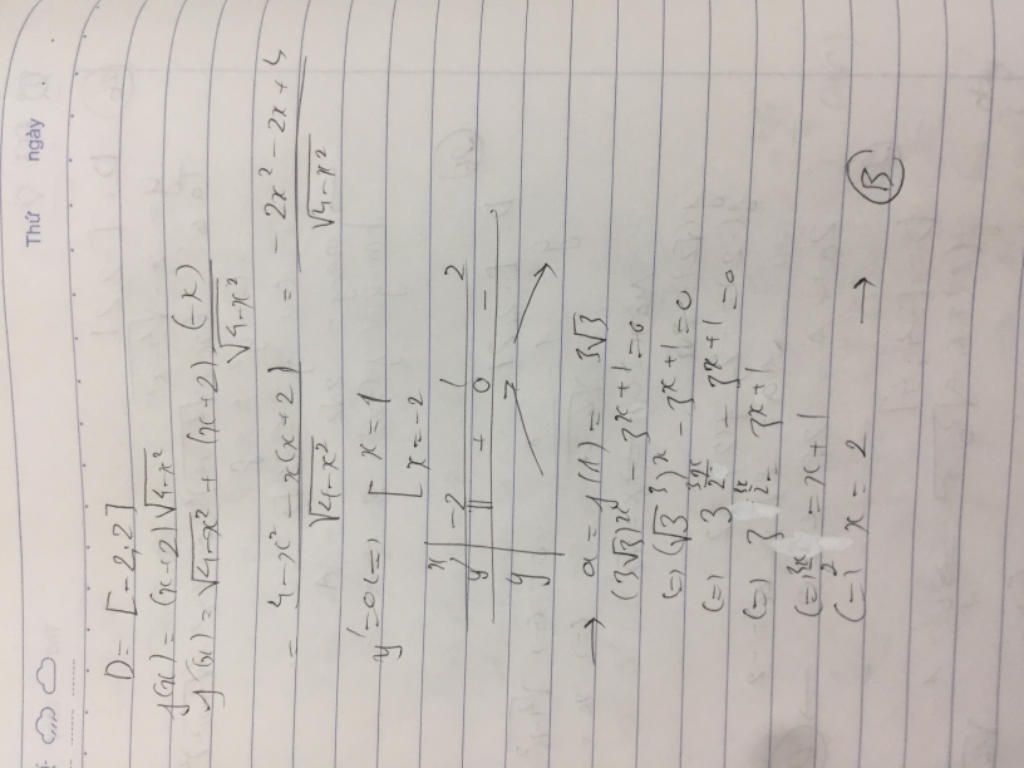 Thứ ngày
D = [-2;2]
f(x) = (x+2)√4-x²
f'(x) = √4-x² + (x+2) . (-x) / √4-x²
= 4-x² - x(x+2) / √4-x² = -2x² - 2x + 4 / √4-x²
y' = 0 (=) [ x = 1
[ x = -2
x | -2 1 2
y' || + 0 -
y
→ a = f(1) = 3√3
(3√3)^x - 3^x+1 = 0
(=) (√3³)^x - 3^x+1 = 0
(=) 3^3x/2 - 3^x+1 = 0
(=) 3^3x/2 = 3^x+1
(=) 3x/2 = x + 1
(=) x = 2 → (B)